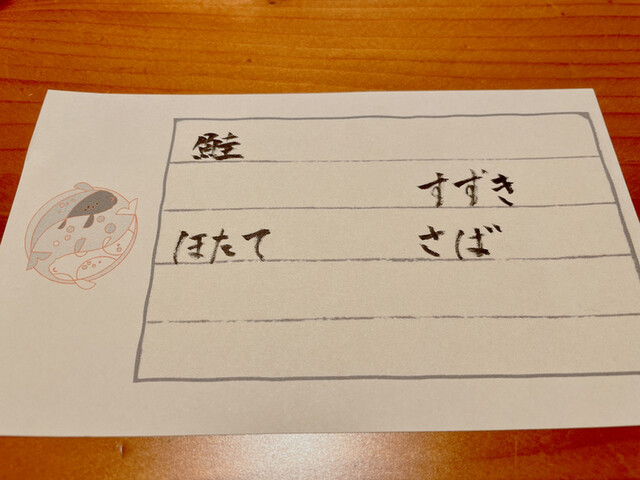 鮭
すずき
ほたて さば